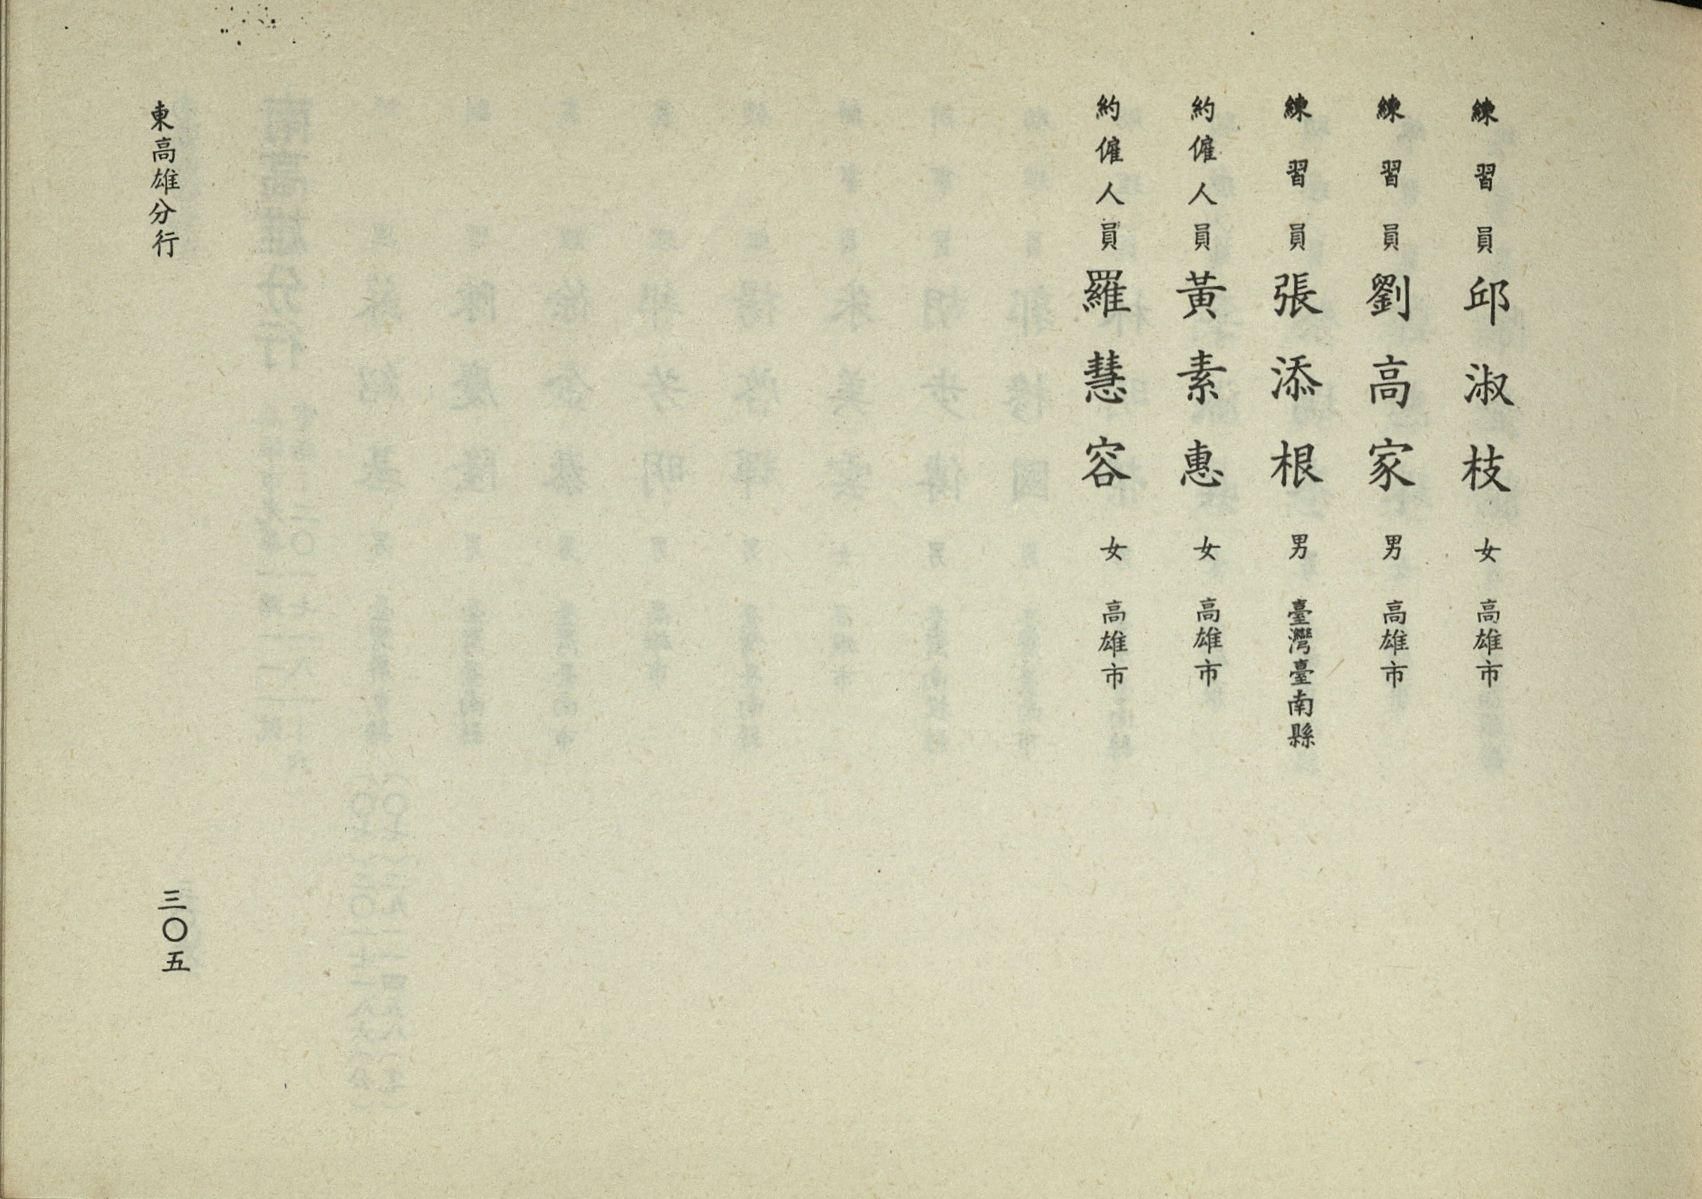 練習員邱淑枝 女 高雄市
練習員劉高家 男 高雄市
練習員張添根 男 臺灣臺南縣
約僱人員黃素惠 女 高雄市
約僱人員羅慧容 女 高雄市
東高雄分行
三〇五